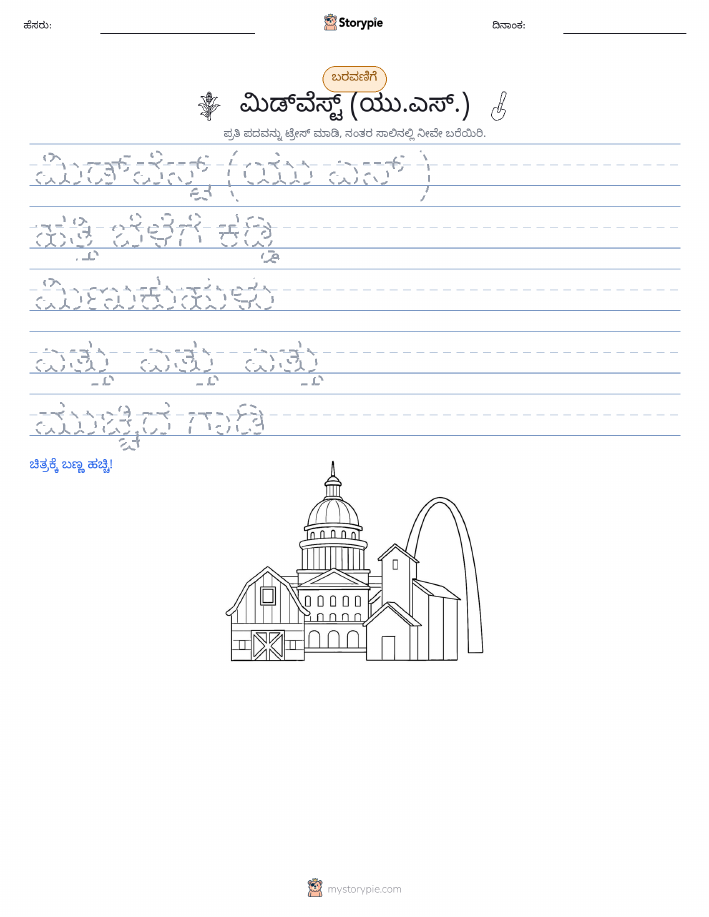 ಹೆಸರು:
Storypie
ದಿನಾಂಕ:
ಬರವಣಿಗೆ
ಮಿಡ್‌ವೆಸ್ಟ್ (ಯು.ಎಸ್.)
ಪ್ರತಿ ಪದವನ್ನು ಟ್ರೇಸ್ ಮಾಡಿ, ನಂತರ ಸಾಲಿನಲ್ಲಿ ನೀವೇ ಬರೆಯಿರಿ.
ಮಿಡ್‌ವೆಸ್ಟ್ (ಯು ಎಸ್ )
ಹತ್ತಿ ಬೆಳೆಗೆ ಕಡ್ಡಿ
ಮಿಣುಕುಹುಳು
ಎತ್ತು ಎತ್ತು ಎತ್ತು
ಮುಚ್ಚಿದ ಗಾಡಿ
ಚಿತ್ರಕ್ಕೆ ಬಣ್ಣ ಹಚ್ಚಿ!
mystorypie.com